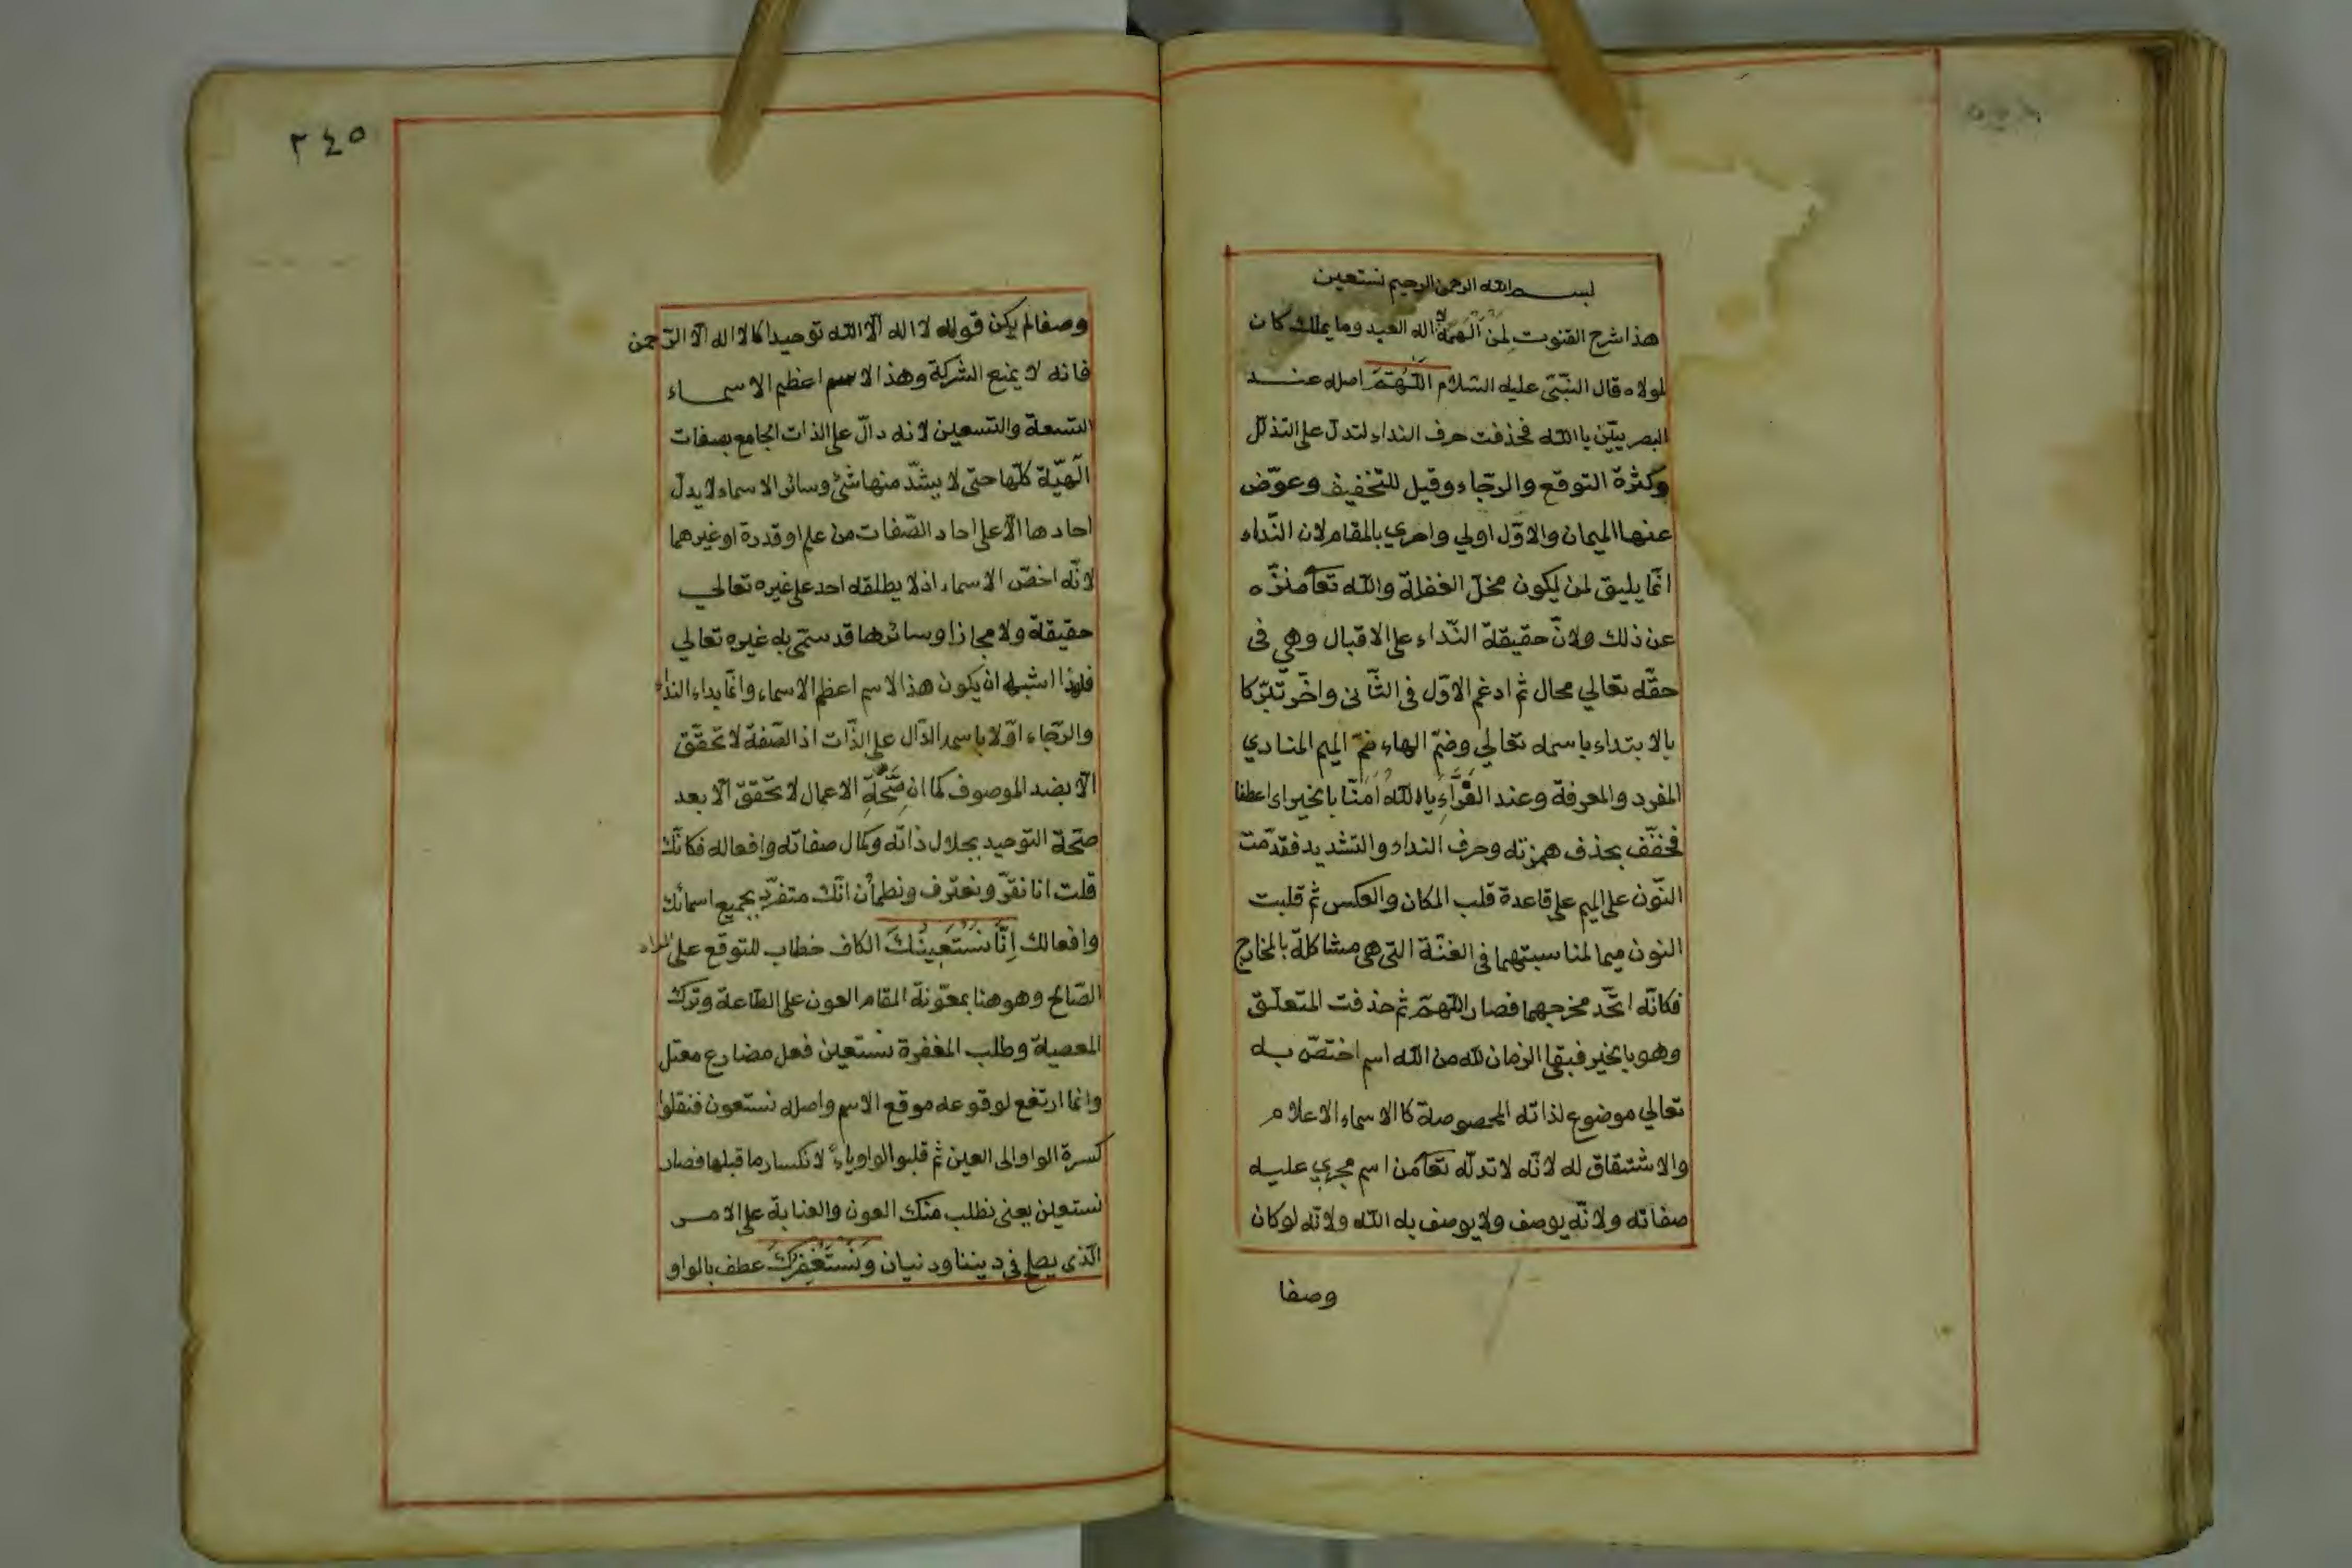 بسم الله الرحمن الرحيم نستعين
هذا شرح القنوت لمن الهمه لا اله العبد وما يملك كان
لمولاه قال النبّي عليه السّلام اللّهمّ اصله عند
البصريّين يا الله فحذفت حرف النداء لتدل على التذلّل
وكثرة التوقع والرجّاء وقيل للتخفيف وعوّض
عنها الميمان والاوّل اولي واحري بالمقام لان النّداء
انّما يليق لمن يكون محلّ الغفلة والله تعا منزّه
عن ذلك ولانّ حقيقة النّداء على الاقبال وهي فى
حقّه تعالي محال ثم ادغم الاوّل فى الثّانى واخّر تبرّكا
بالابتداء باسمه تعالي وضمّ الهاء ضمّ الميم المنادي
المفرد والمعرفة وعند القرّاء يا الله امّنّا بالخير اى اعطنا
فخفّف بحذف همزته وحرف النداء والتشديد فقدّمت
النّون على الميم على قاعدة قلب المكان والعكس ثم قلبت
النون ميما لمناسبتهما فى الغنّة التى هى مشاكلة بالمخارج
فكانّه اتّحد مخرجهما فصار اللّهمّ ثم حذفت المتعلّق
وهو بالخير فبقى الزمان لله من الله اسم اختصّ به
تعالي موضوع لذاته المحصوصة كالاسماء الاعلام
والاشتقاق له لانّه لا تدلّه تعا من اسم مجري عليه
صفاته ولانّه يوصف ولا يوصف به الله ولانّه لو كان
وصفا
٢٤٥
وصفا لم يكن قوله لا اله الّا الله توحيدا كالا اله الّا الرّحمن
فانه لا يمنع الشركة وهذا الاسم اعظم الاسماء
التسعة والتسعين لانه دالّ على الذات الجامع بصفات
الهيّة كلّها حتى لا يشذّ منها شئ وسائر الاسماء لا يدلّ
احادها الّا على احاد الصّفات من علم او قدرة او غيرهما
لانّه اخصّ الاسماء اذ لا يطلقه احد على غيره تعالي
حقيقة ولا مجازا وسائرها قد سمّى به غيره تعالي
فلهذا اشبه ان يكون هذا الاسم اعظم الاسماء وانّما بداء النداء
والرجّاء اوّلا باسمه الدّال على الذّات اذ الصّفة لا تحقّق
الّا بضد الموصوف كما ان صّحّة الاعمال لا تحقّق الّا بعد
صحّة التوحيد بجلال ذاته وكمال صفاته وافعاله فكانّك
قلت انا نقرّ ونعترف ونطمأن انّك متفرّد بجميع اسمائك
وافعالك اِنَّا نَسْتَعِينُكَ الكاف خطاب للتوقع على المراد
الصّالح وهو هنا بمعّونة المقام العون على الطّاعة وترك
المعصية وطلب المغفرة نستعين فعل مضارع معتل
وانما ارتفع لوقوعه موقع الاسم واصله نستعون فنقلوا
كسرة الواو الى العين ثم قلبوا الواو ياءً لانكسار ما قبلها فصار
نستعين يعنى نطلب منك العون والعناية على الامر
الّذى يصلح فى ديننا ودنيان وَنَسْتَغْفِرُكَ عطف بالواو